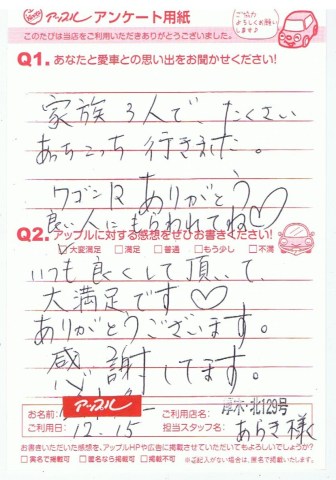 アップル アンケート用紙
ご協力
よろしくお願い
します♪
このたびは当店をご利用いただきありがとうございました。
Q1. あなたと愛車との思い出をお聞かせください!
家族3人で、たくさん
あっちこっち行きました。
ワゴンR ありがとう
良い人にまわされてね♡
Q2. アップルに対する感想をぜひお書きください!
□大変満足 □満足 □普通 □もう少し □不満
いつも良くして頂いて
大満足です♡
ありがとうございます。
感謝してます。
お名前
アップル
ご利用店名
厚木・北129号
ご利用日
12.15
担当スタッフ名
あらき様
お書きいただいた感想を、アップルHPや広告に掲載させていただいてもよろしいでしょうか?
□実名で掲載可 □匿名なら掲載可 □掲載不可
※ご記入がない場合は、匿名で掲載いたします。